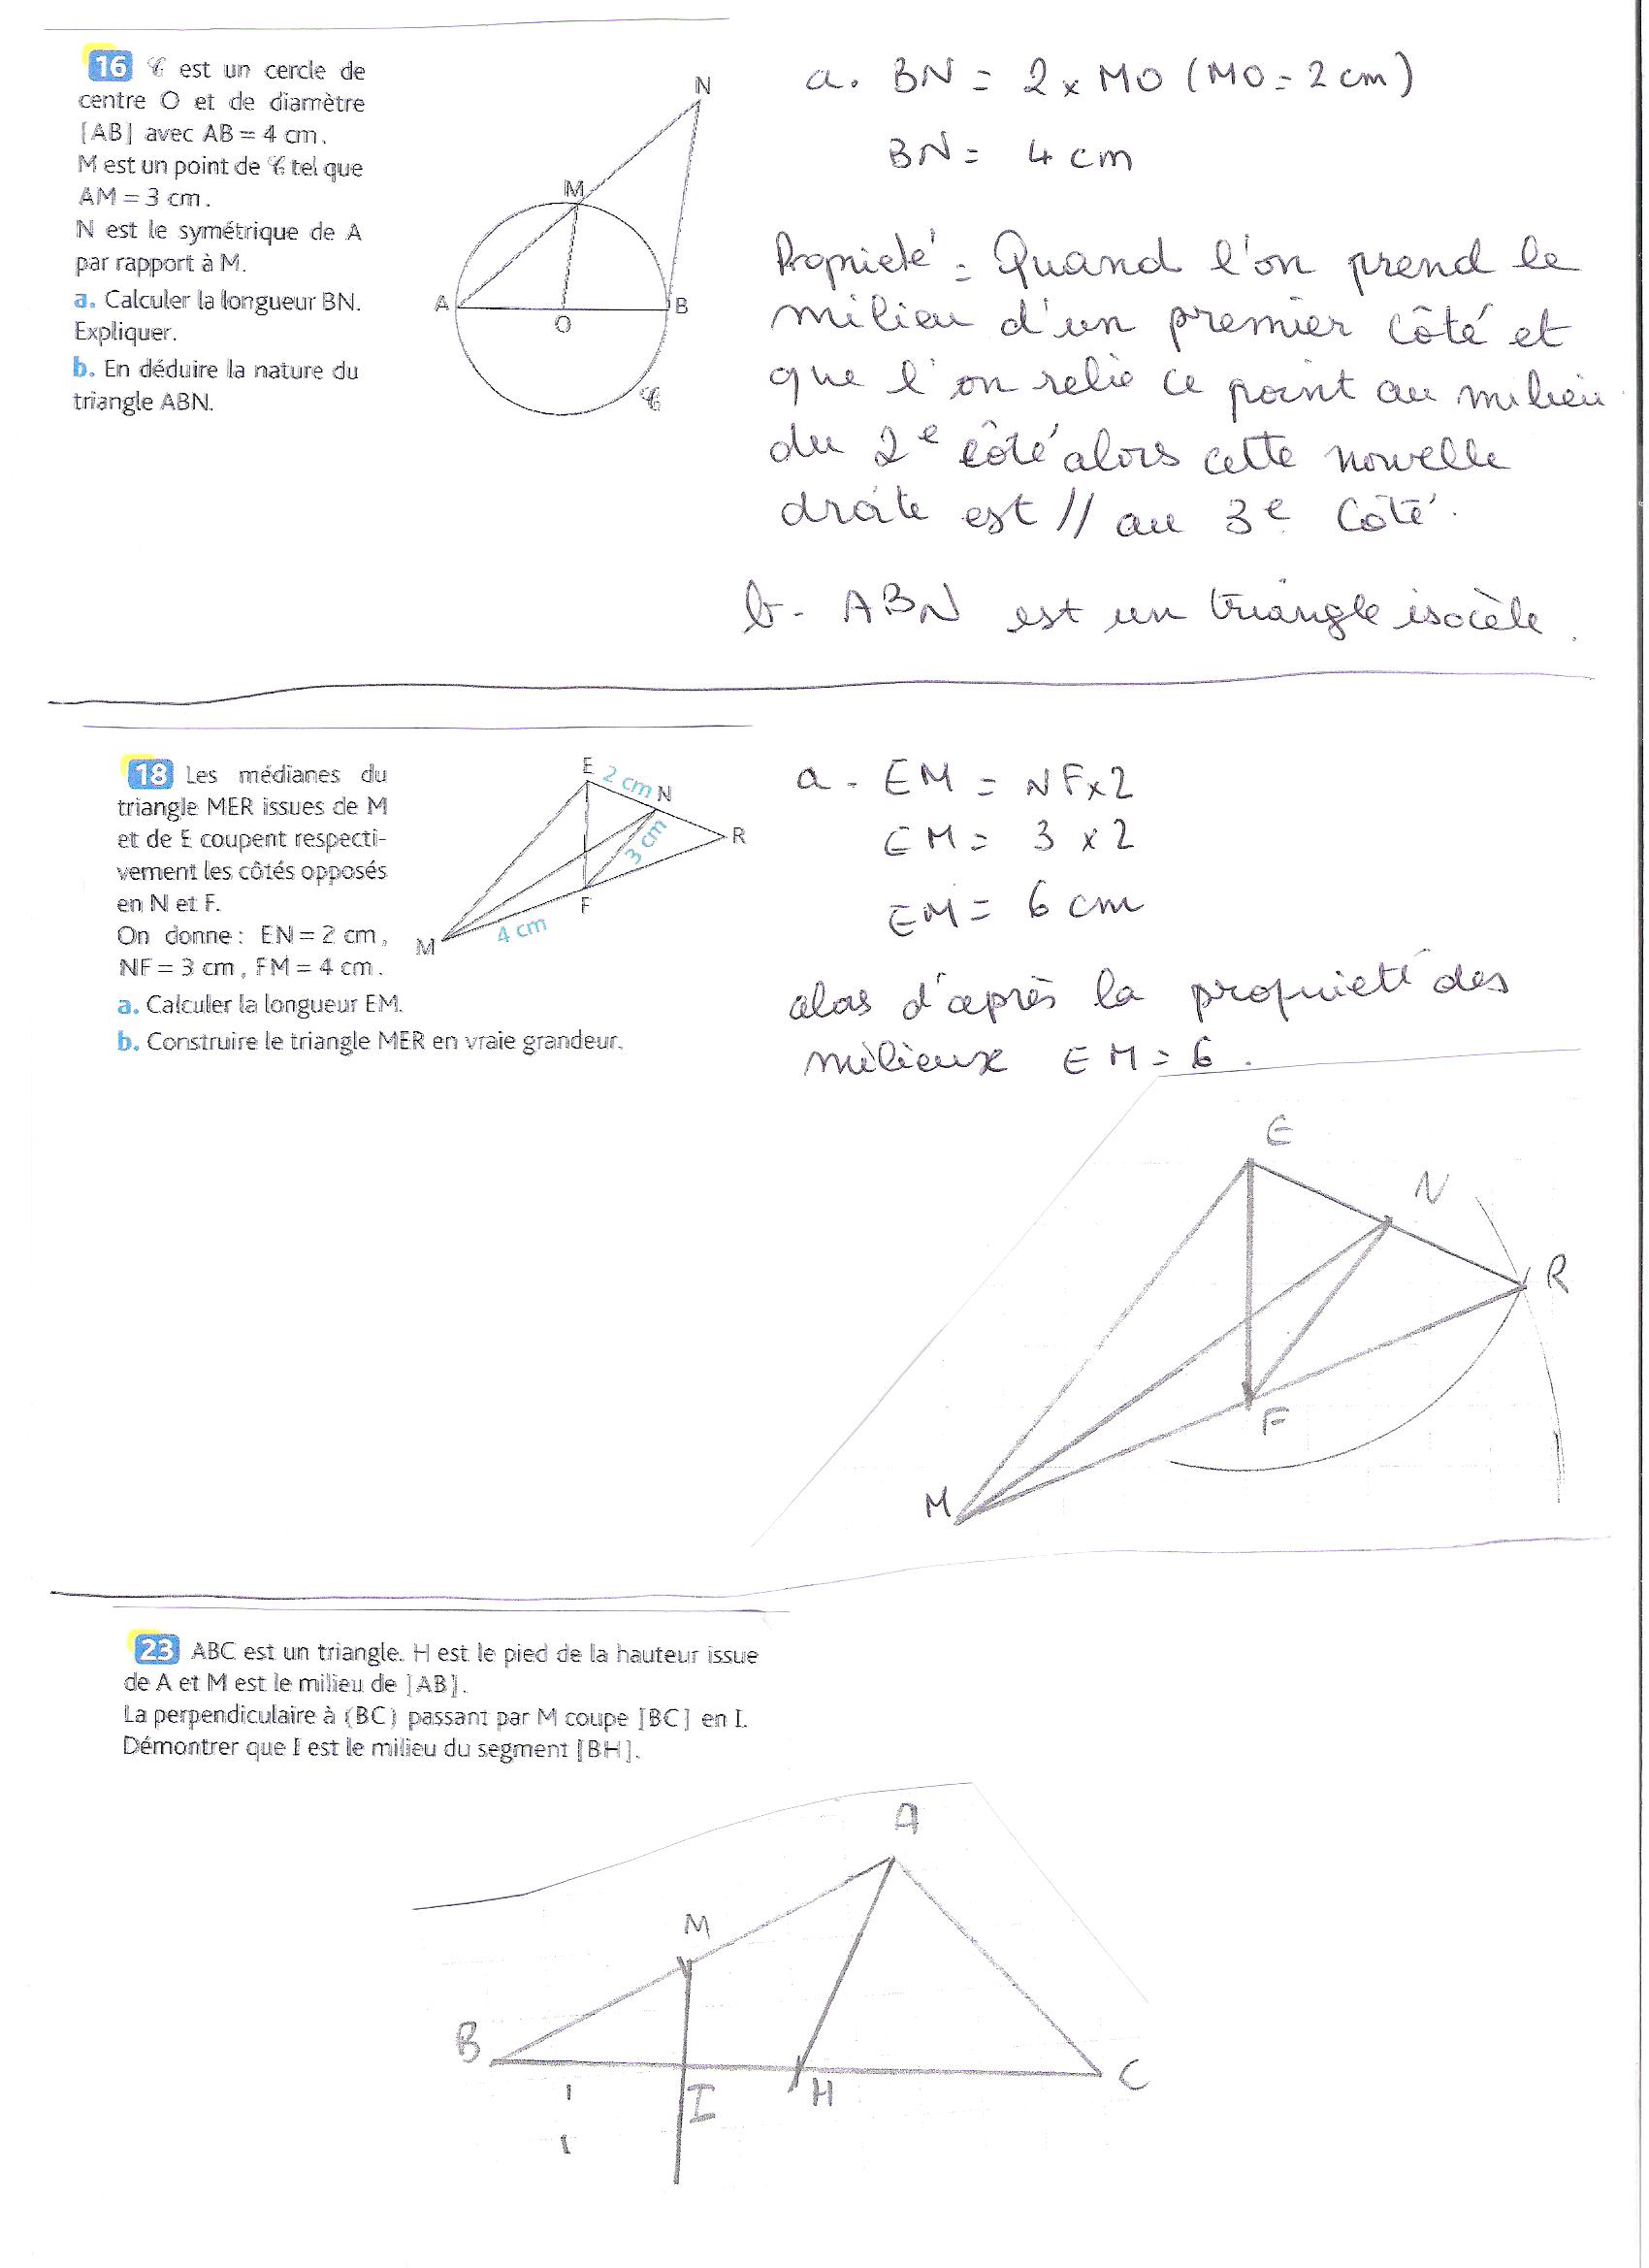 16 𝒞 est un cercle de
centre O et de diamètre
[AB] avec AB = 4 cm.
M est un point de 𝒞 tel que
AM = 3 cm.
N est le symétrique de A
par rapport à M.
a. Calculer la longueur BN.
Expliquer.
b. En déduire la nature du
triangle ABN.
N
M
A
O
B
𝒞
a. BN = 2 x MO (MO = 2 cm)
BN = 4 cm
Propriété = Quand l'on prend le
milieu d'un premier côté et
que l'on relie ce point au milieu
du 2e côté alors cette nouvelle
droite est // au 3e côté.
b - ABN est un triangle isocèle.
18 Les médianes du
triangle MER issues de M
et de E coupent respecti-
vement les côtés opposés
en N et F.
On donne : EN = 2 cm,
NF = 3 cm, FM = 4 cm.
a. Calculer la longueur EM.
b. Construire le triangle MER en vraie grandeur.
E
2 cm
N
R
3 cm
F
4 cm
M
a - EM = NF x 2
EM = 3 x 2
EM = 6 cm
alors d'après la propriété des
milieux EM = 6.
E
N
R
F
M
23 ABC est un triangle. H est le pied de la hauteur issue
de A et M est le milieu de [AB].
La perpendiculaire à (BC) passant par M coupe [BC] en I.
Démontrer que I est le milieu du segment [BH].
A
M
B
I
H
C